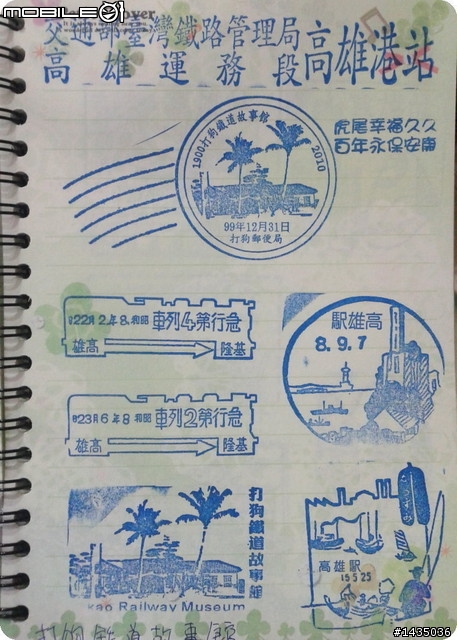 MOBILE01
交通部臺灣鐵路管理局
高雄運務段高雄港站
1900打狗鐵道故事館2010
99年12月31日
打狗郵便局
虎尾幸福久久
百年永保安康
日22月2年8和昭 車列4第行急
雄高 隆基
駅雄高
8.9.7
日23月6年8和昭 車列2第行急
雄高 隆基
打狗鐵道故事館
kao Railway Museum
高雄駅
15.5.25
打狗鐵道故事館
#1435036